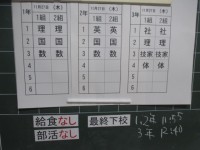 1年 11月27日(木)
1組 2組
1 理 理
2 国 国
3 数 数
4
5
6
2年 11月27日(木)
1組 2組
1 英 英
2 国 国
3 数 数
4
5
6
3年 11月27日(木)
1組 2組
1 社 社
2 理 理
3 技家 技家
4 体 体
5
6
給食なし
部活なし
最終下校
1,2年 11:55
3年 12:40